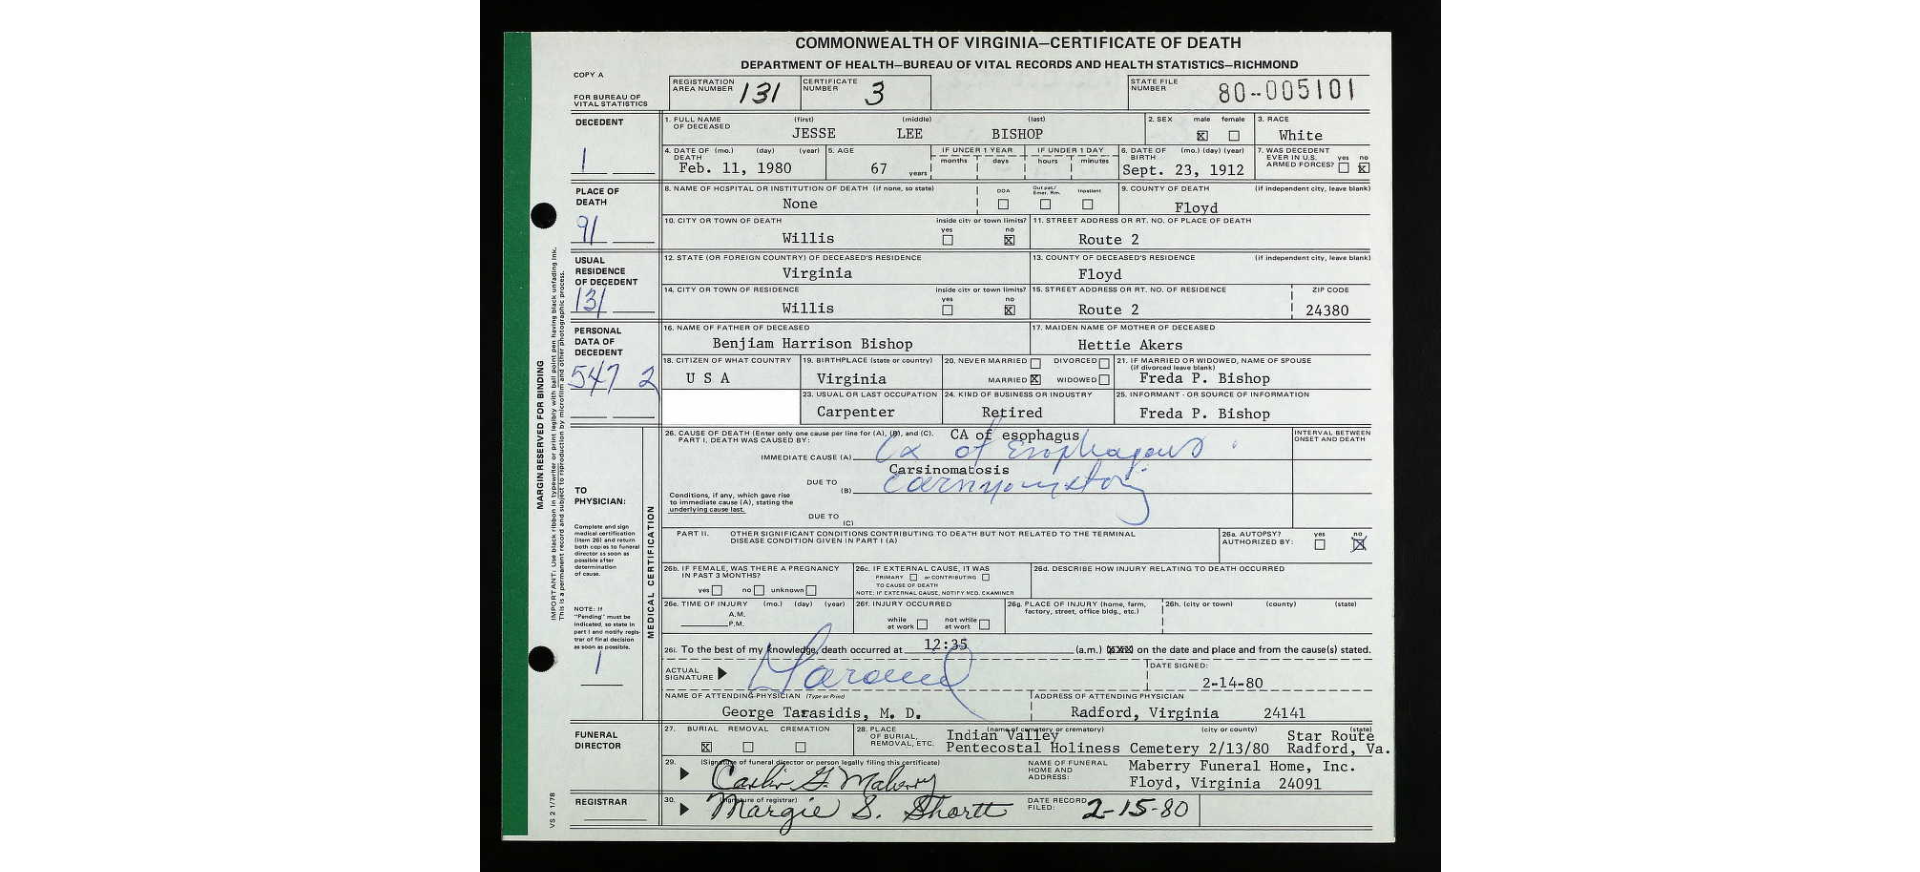 COMMONWEALTH OF VIRGINIA—CERTIFICATE OF DEATH
DEPARTMENT OF HEALTH—BUREAU OF VITAL RECORDS AND HEALTH STATISTICS—RICHMOND
COPY A
FOR BUREAU OF VITAL STATISTICS
REGISTRATION AREA NUMBER 131 CERTIFICATE NUMBER 3 STATE FILE NUMBER 80-005101
DECEDENT
1
1. FULL NAME OF DECEASED (first) (middle) (last) 2. SEX male female 3. RACE
JESSE LEE BISHOP ☒ ☐ White
4. DATE OF DEATH (mo.) (day) (year) 5. AGE IF UNDER 1 YEAR months days IF UNDER 1 DAY hours minutes 6. DATE OF BIRTH (mo.) (day) (year) 7. WAS DECEDENT EVER IN U.S. ARMED FORCES? yes no
Feb. 11, 1980 67 years Sept. 23, 1912 ☐ ☒
PLACE OF DEATH
91
8. NAME OF HOSPITAL OR INSTITUTION OF DEATH (if none, so state) DOA Out pat/ Emer. Rm. Inpatient 9. COUNTY OF DEATH (if independent city, leave blank)
None ☐ ☐ ☐ Floyd
10. CITY OR TOWN OF DEATH inside city or town limits? yes no 11. STREET ADDRESS OR RT. NO. OF PLACE OF DEATH
Willis ☐ ☒ Route 2
USUAL RESIDENCE OF DECEDENT
131
12. STATE (OR FOREIGN COUNTRY) OF DECEASED'S RESIDENCE 13. COUNTY OF DECEASED'S RESIDENCE (if independent city, leave blank)
Virginia Floyd
14. CITY OR TOWN OF RESIDENCE inside city or town limits? yes no 15. STREET ADDRESS OR RT. NO. OF RESIDENCE ZIP CODE
Willis ☐ ☒ Route 2 24380
PERSONAL DATA OF DECEDENT
547 2
16. NAME OF FATHER OF DECEASED 17. MAIDEN NAME OF MOTHER OF DECEASED
Benjiam Harrison Bishop Hettie Akers
18. CITIZEN OF WHAT COUNTRY 19. BIRTHPLACE (state or country) 20. NEVER MARRIED ☐ DIVORCED ☐ 21. IF MARRIED OR WIDOWED, NAME OF SPOUSE (if divorced leave blank)
U S A Virginia MARRIED ☒ WIDOWED ☐ Freda P. Bishop
23. USUAL OR LAST OCCUPATION 24. KIND OF BUSINESS OR INDUSTRY 25. INFORMANT - OR SOURCE OF INFORMATION
Carpenter Retired Freda P. Bishop
26. CAUSE OF DEATH (Enter only one cause per line for (A), (B), and (C). INTERVAL BETWEEN ONSET AND DEATH
PART I. DEATH WAS CAUSED BY: CA of esophagus
IMMEDIATE CAUSE (A) Ca of Esophagous
Carsinomatosis
DUE TO (B)
Conditions, if any, which gave rise to immediate cause (A), stating the underlying cause last.
DUE TO (C)
TO PHYSICIAN:
Complete and sign medical certification (item 26) and return both copies to funeral director as soon as possible after determination of cause.
NOTE: If "Pending" must be indicated, so state in part I and notify registrar of final decision as soon as possible.
1
MEDICAL CERTIFICATION
PART II. OTHER SIGNIFICANT CONDITIONS CONTRIBUTING TO DEATH BUT NOT RELATED TO THE TERMINAL DISEASE CONDITION GIVEN IN PART I (A) 26a. AUTOPSY? AUTHORIZED BY: yes ☐ no ☒
26b. IF FEMALE, WAS THERE A PREGNANCY IN PAST 3 MONTHS? yes ☐ no ☐ unknown ☐
26c. IF EXTERNAL CAUSE, IT WAS PRIMARY ☐ or CONTRIBUTING ☐ TO CAUSE OF DEATH
NOTE: IF EXTERNAL CAUSE, NOTIFY MED. EXAMINER
26d. DESCRIBE HOW INJURY RELATING TO DEATH OCCURRED
26e. TIME OF INJURY (mo.) (day) (year) A.M. P.M.
26f. INJURY OCCURRED while at work ☐ not while at work ☐
26g. PLACE OF INJURY (home, farm, factory, street, office bldg., etc.) 26h. (city or town) (county) (state)
26i. To the best of my knowledge, death occurred at 12:35 (a.m.) on the date and place and from the cause(s) stated.
ACTUAL SIGNATURE DATE SIGNED:
2-14-80
NAME OF ATTENDING PHYSICIAN (Type or Print) ADDRESS OF ATTENDING PHYSICIAN
George Tarasidis, M. D. Radford, Virginia 24141
FUNERAL DIRECTOR
27. BURIAL ☒ REMOVAL ☐ CREMATION ☐ 28. PLACE OF BURIAL, REMOVAL, ETC. (name of cemetery or crematory) (city or county) (state)
Indian Valley Star Route
Pentecostal Holiness Cemetery 2/13/80 Radford, Va.
29. (Signature of funeral director or person legally filing this certificate) NAME OF FUNERAL HOME AND ADDRESS:
Maberry Funeral Home, Inc.
Floyd, Virginia 24091
REGISTRAR
30. (Signature of registrar) Margie S. Shortt DATE RECORD FILED: 2-15-80
MARGIN RESERVED FOR BINDING
IMPORTANT: Use black ribbon in typewriter or print legibly with ball point pen having black unfading ink.
This is a permanent record and subject to reproduction by microfilm and other photographic process.
VS 2 1/78